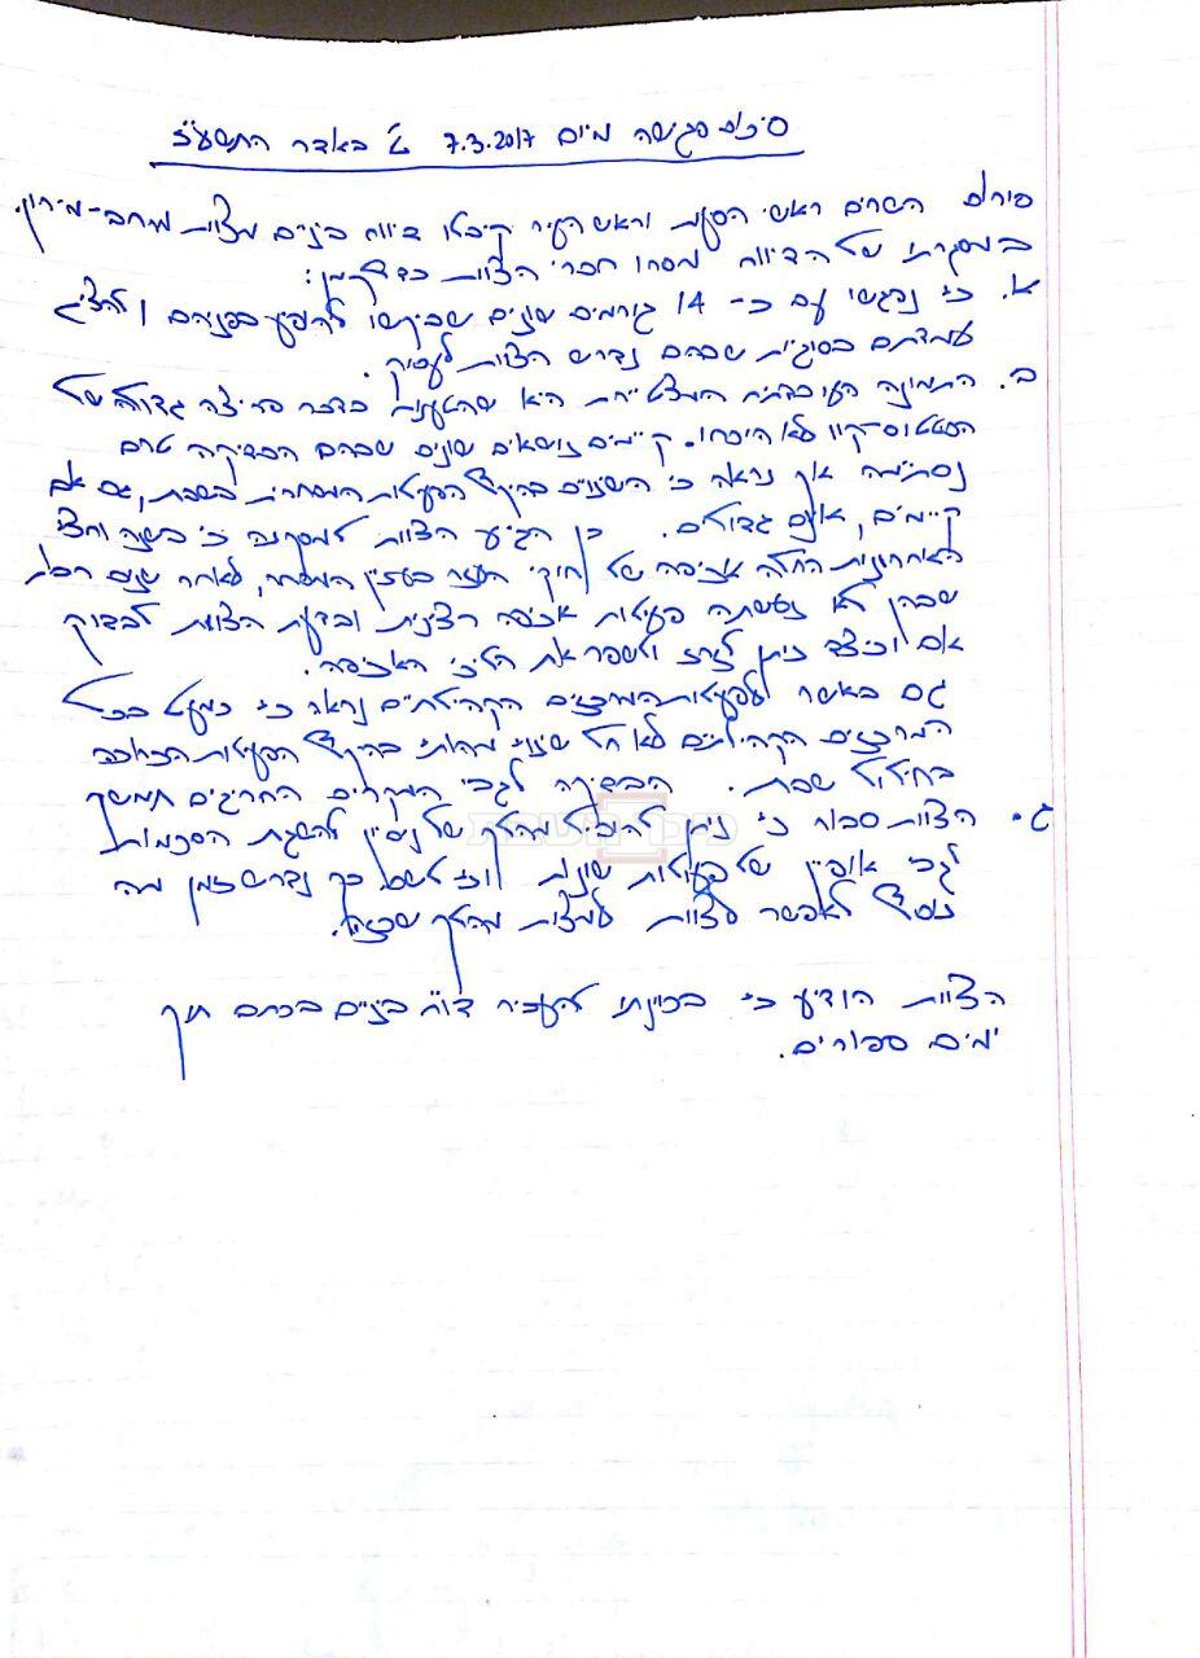 סיכום פגישה מיום 7.3.2017 ט' באדר התשע"ז
פורום השרים ראשי הסעות וראש העיר קיבלו דיווח ביניים מצוות מרחב-מירון.
במסגרתו של הדיווח מסרו חברי הצוות כדלקמן:
א. כי נפגשו עם כ- 14 גורמים שונים שביקשו להופיע בפניהם ולהציג
עמדתם בסוגיות שבהם נדרש הצוות לעסוק.
ב. התמונה העובדתית המצטיירת היא שהטענות בדבר פריצה גדולה של
הסטטוס-קוו לא הוכחו. קיימים נושאים שונים שבהם הבדיקה טרם
נסתיימה אך נראה כי השינויים בהיקף הפעילות המסחרית בשבת, גם אם
קיימים, אינם גדולים. כן הגיע הצוות למסקנה כי בשנה וחצי
האחרונות החלה אכיפה של חוקי העזר בעניין המסחר, לאחר שנים רבות
שבהן לא נעשתה פעילות אכיפה רצינית ובדעת הצוות לבדוק
אם וכיצד ניתן לזרז ולשפר את הליכי האכיפה.
גם באשר לפעילות המרכזים הקהילתיים נראה כי כמעט בכל
המרכזים הקהילתיים לא חל שינוי מהותי בהיקף הפעילות הכרוכה
בחילול שבת. הבדיקה לגבי המקרים החריגים תמשך
ג. הצוות סבור כי ניתן להוביל מהלך של נסיון להשגת הסכמות
לגבי אופיין של פעילות שונות וכי לשם כך נדרש זמן מה
נוסף לאפשר לצוות למצות מהלך שכזה.
הצוות הודיע כי בכוונתו להעביר דו"ח ביניים בכתב תוך
ימים ספורים.
כיכר השבת